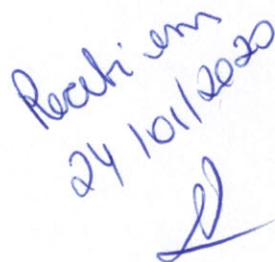 Recebi em
24/01/2020